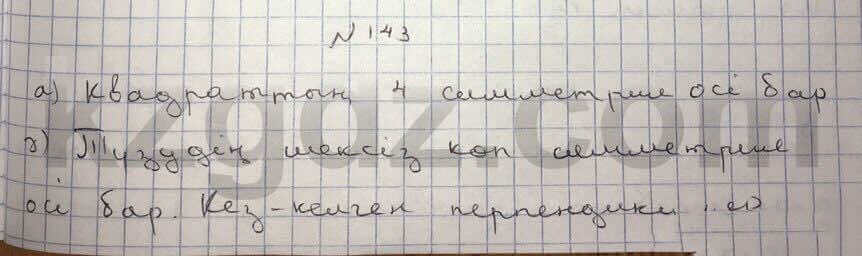 N 143
а) Квадраттың 4 симметрие осі бар
б) Түзудің шексіз көп симметрие
осі бар. Кез-келген перпендики